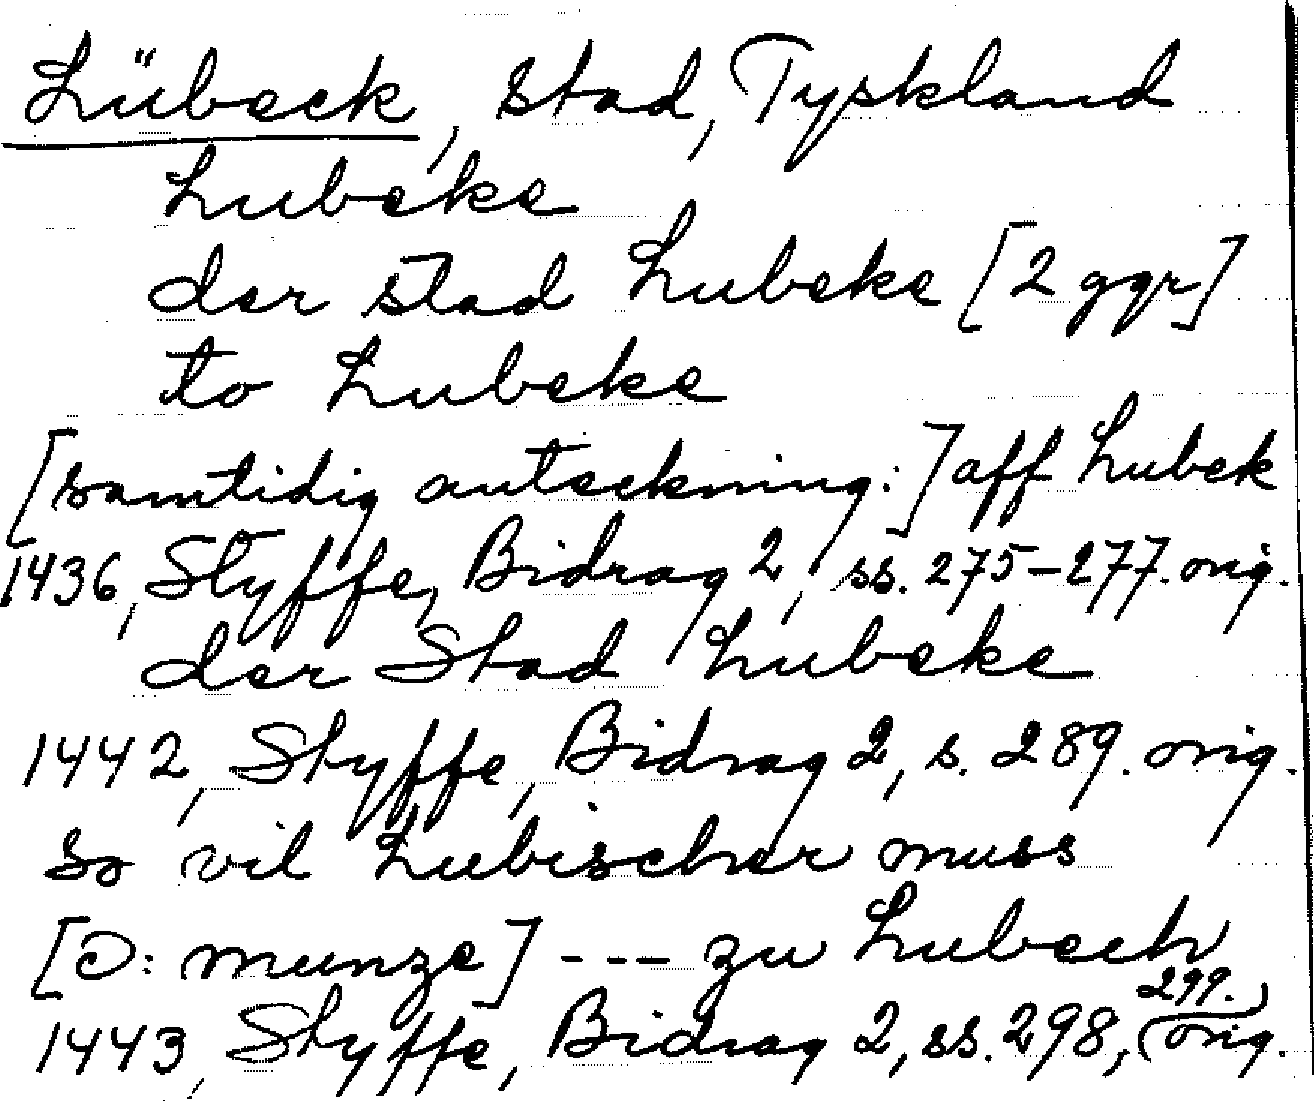 Lübeck, stad, Tyskland
Lubeke
der stad Lubeke [2 ggr]
to Lubeke
[samtidig anteckning:] aff Lubek
1436, Styffe, Bidrag 2, ss. 275-277. orig.
der Stad Lubeke
1442, Styffe, Bidrag 2, s. 289. orig.
so vil Lubischer muss
[ɔ: munze] --- zu Lubech
1443, Styffe, Bidrag 2, ss. 298, 299. orig.